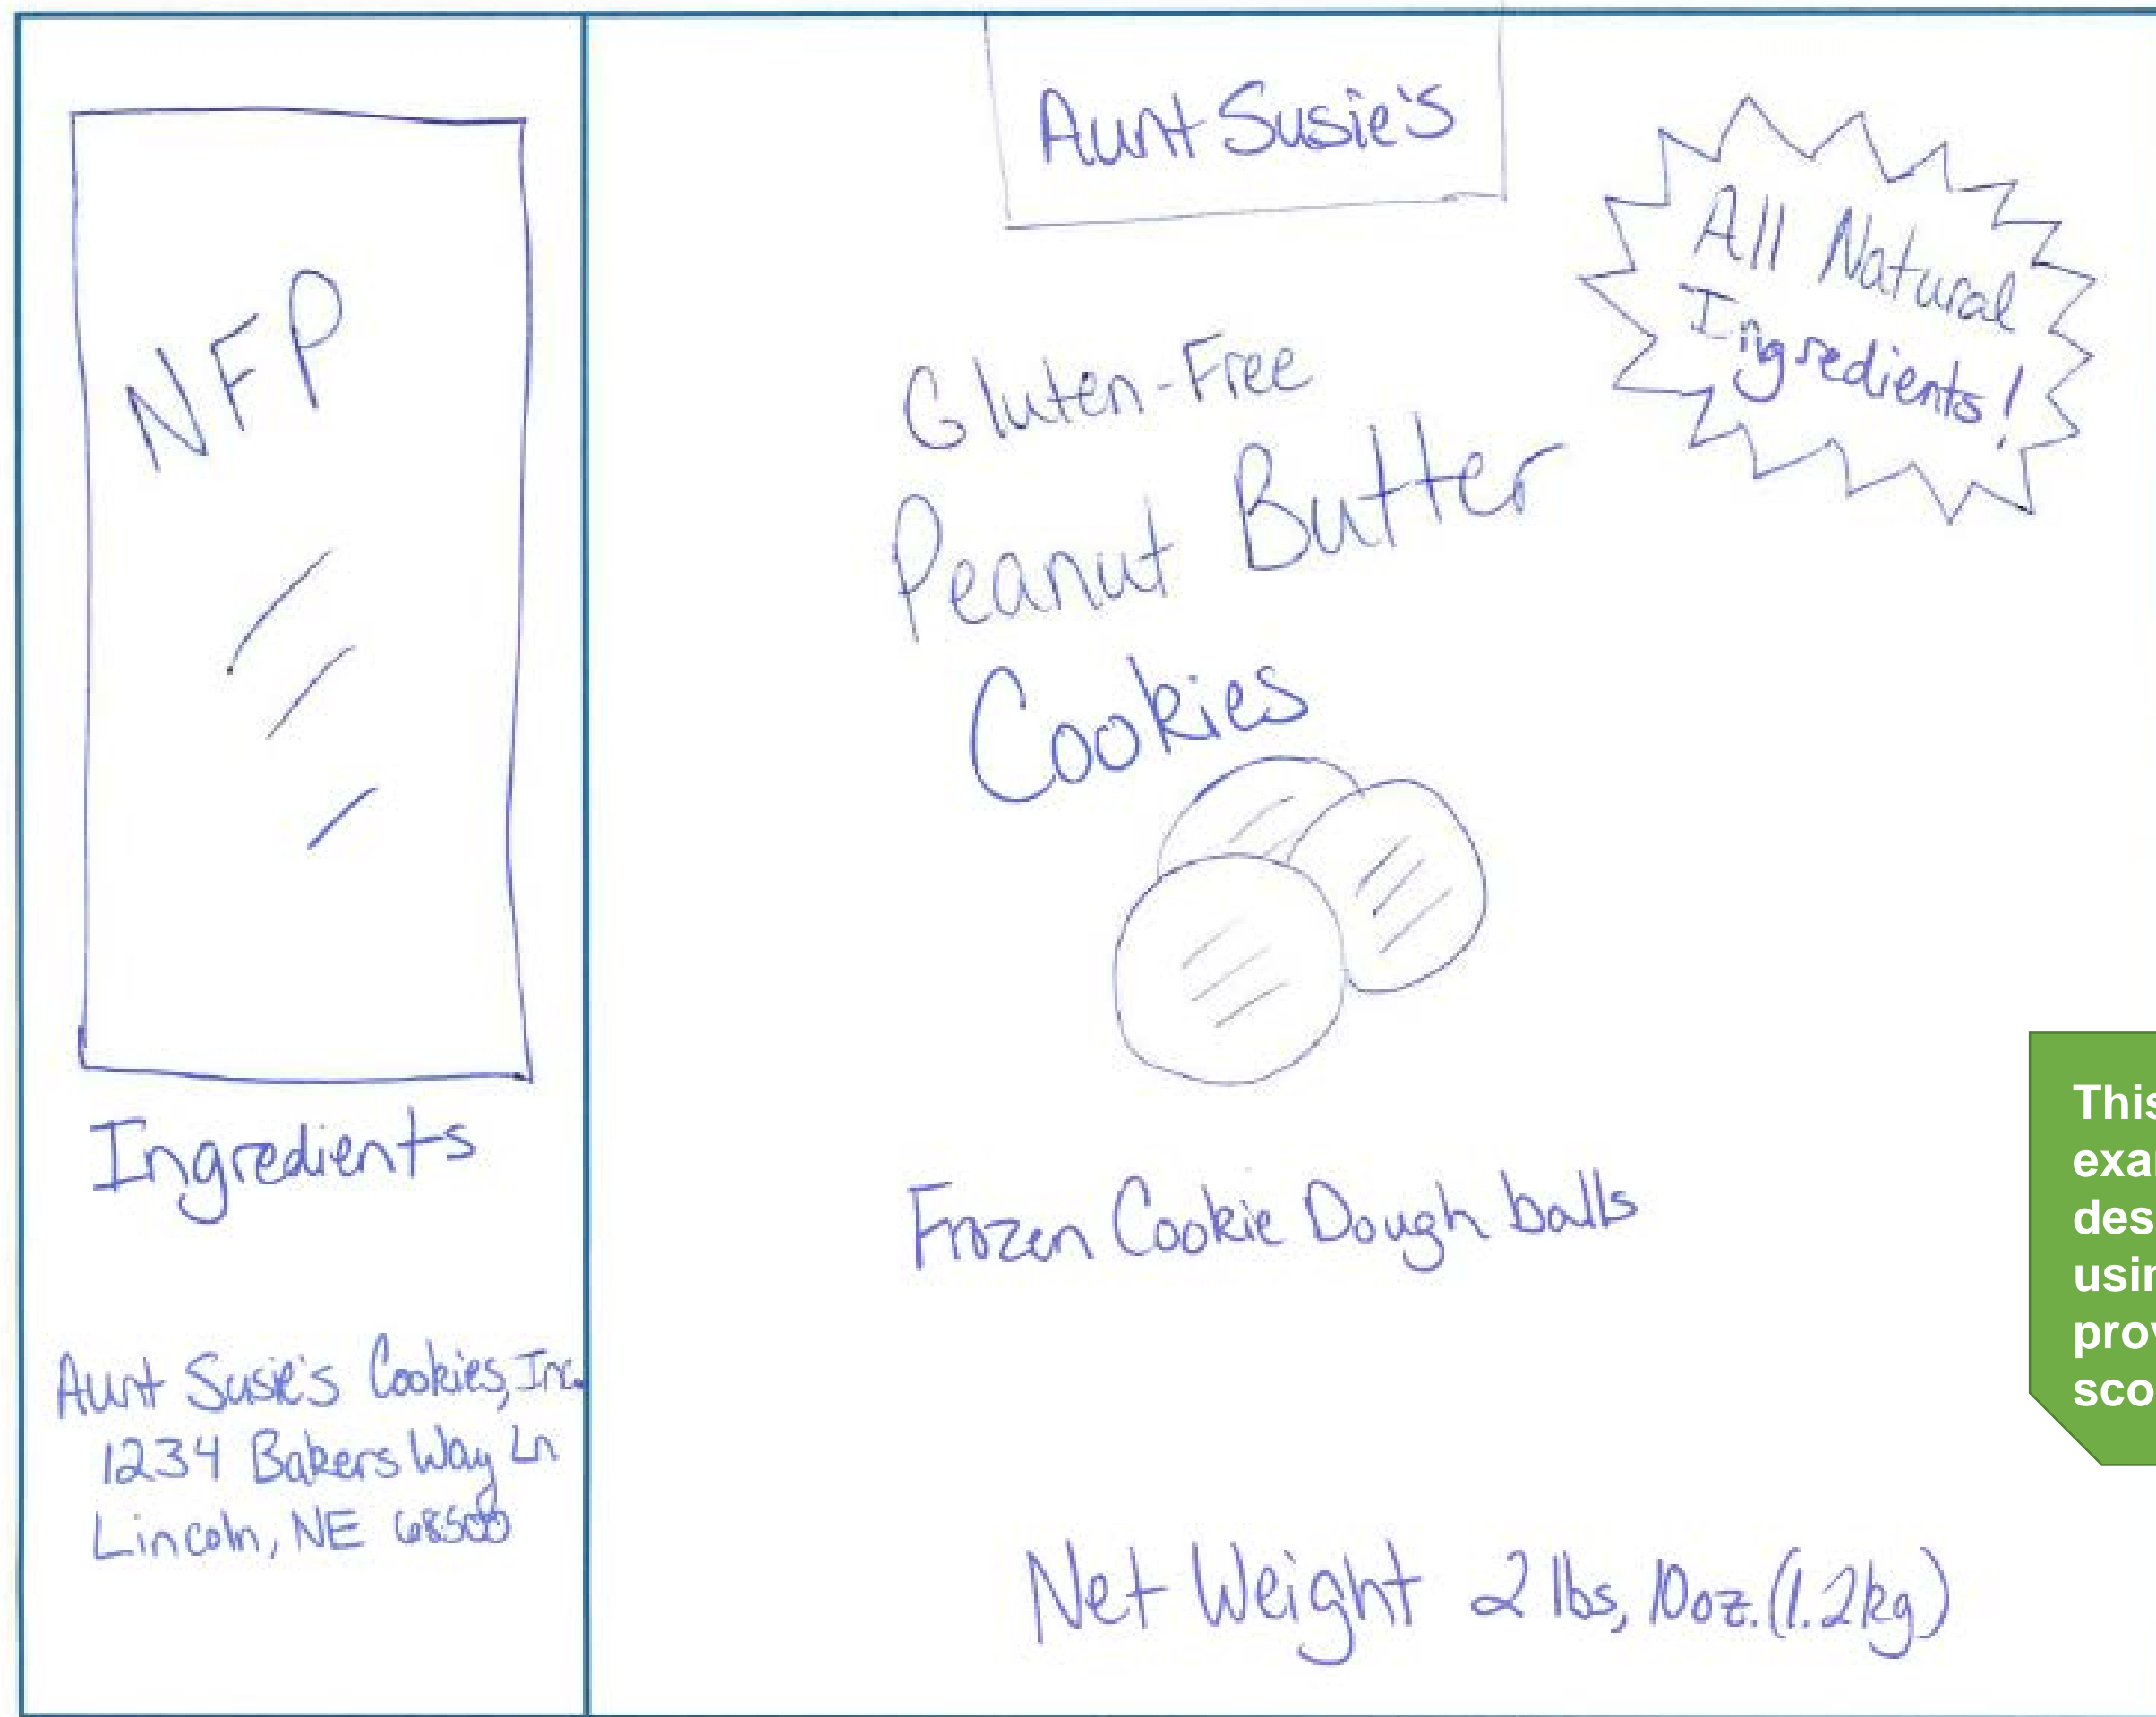 NFP
Ingredients
Aunt Susie's Cookies, Inc.
1234 Bakers Way Ln
Lincoln, NE 68500
Aunt Susie's
All Natural
Ingredients!
Gluten-Free
Peanut Butter
Cookies
Frozen Cookie Dough balls
Net Weight 2 lbs, 10oz. (1.2kg)